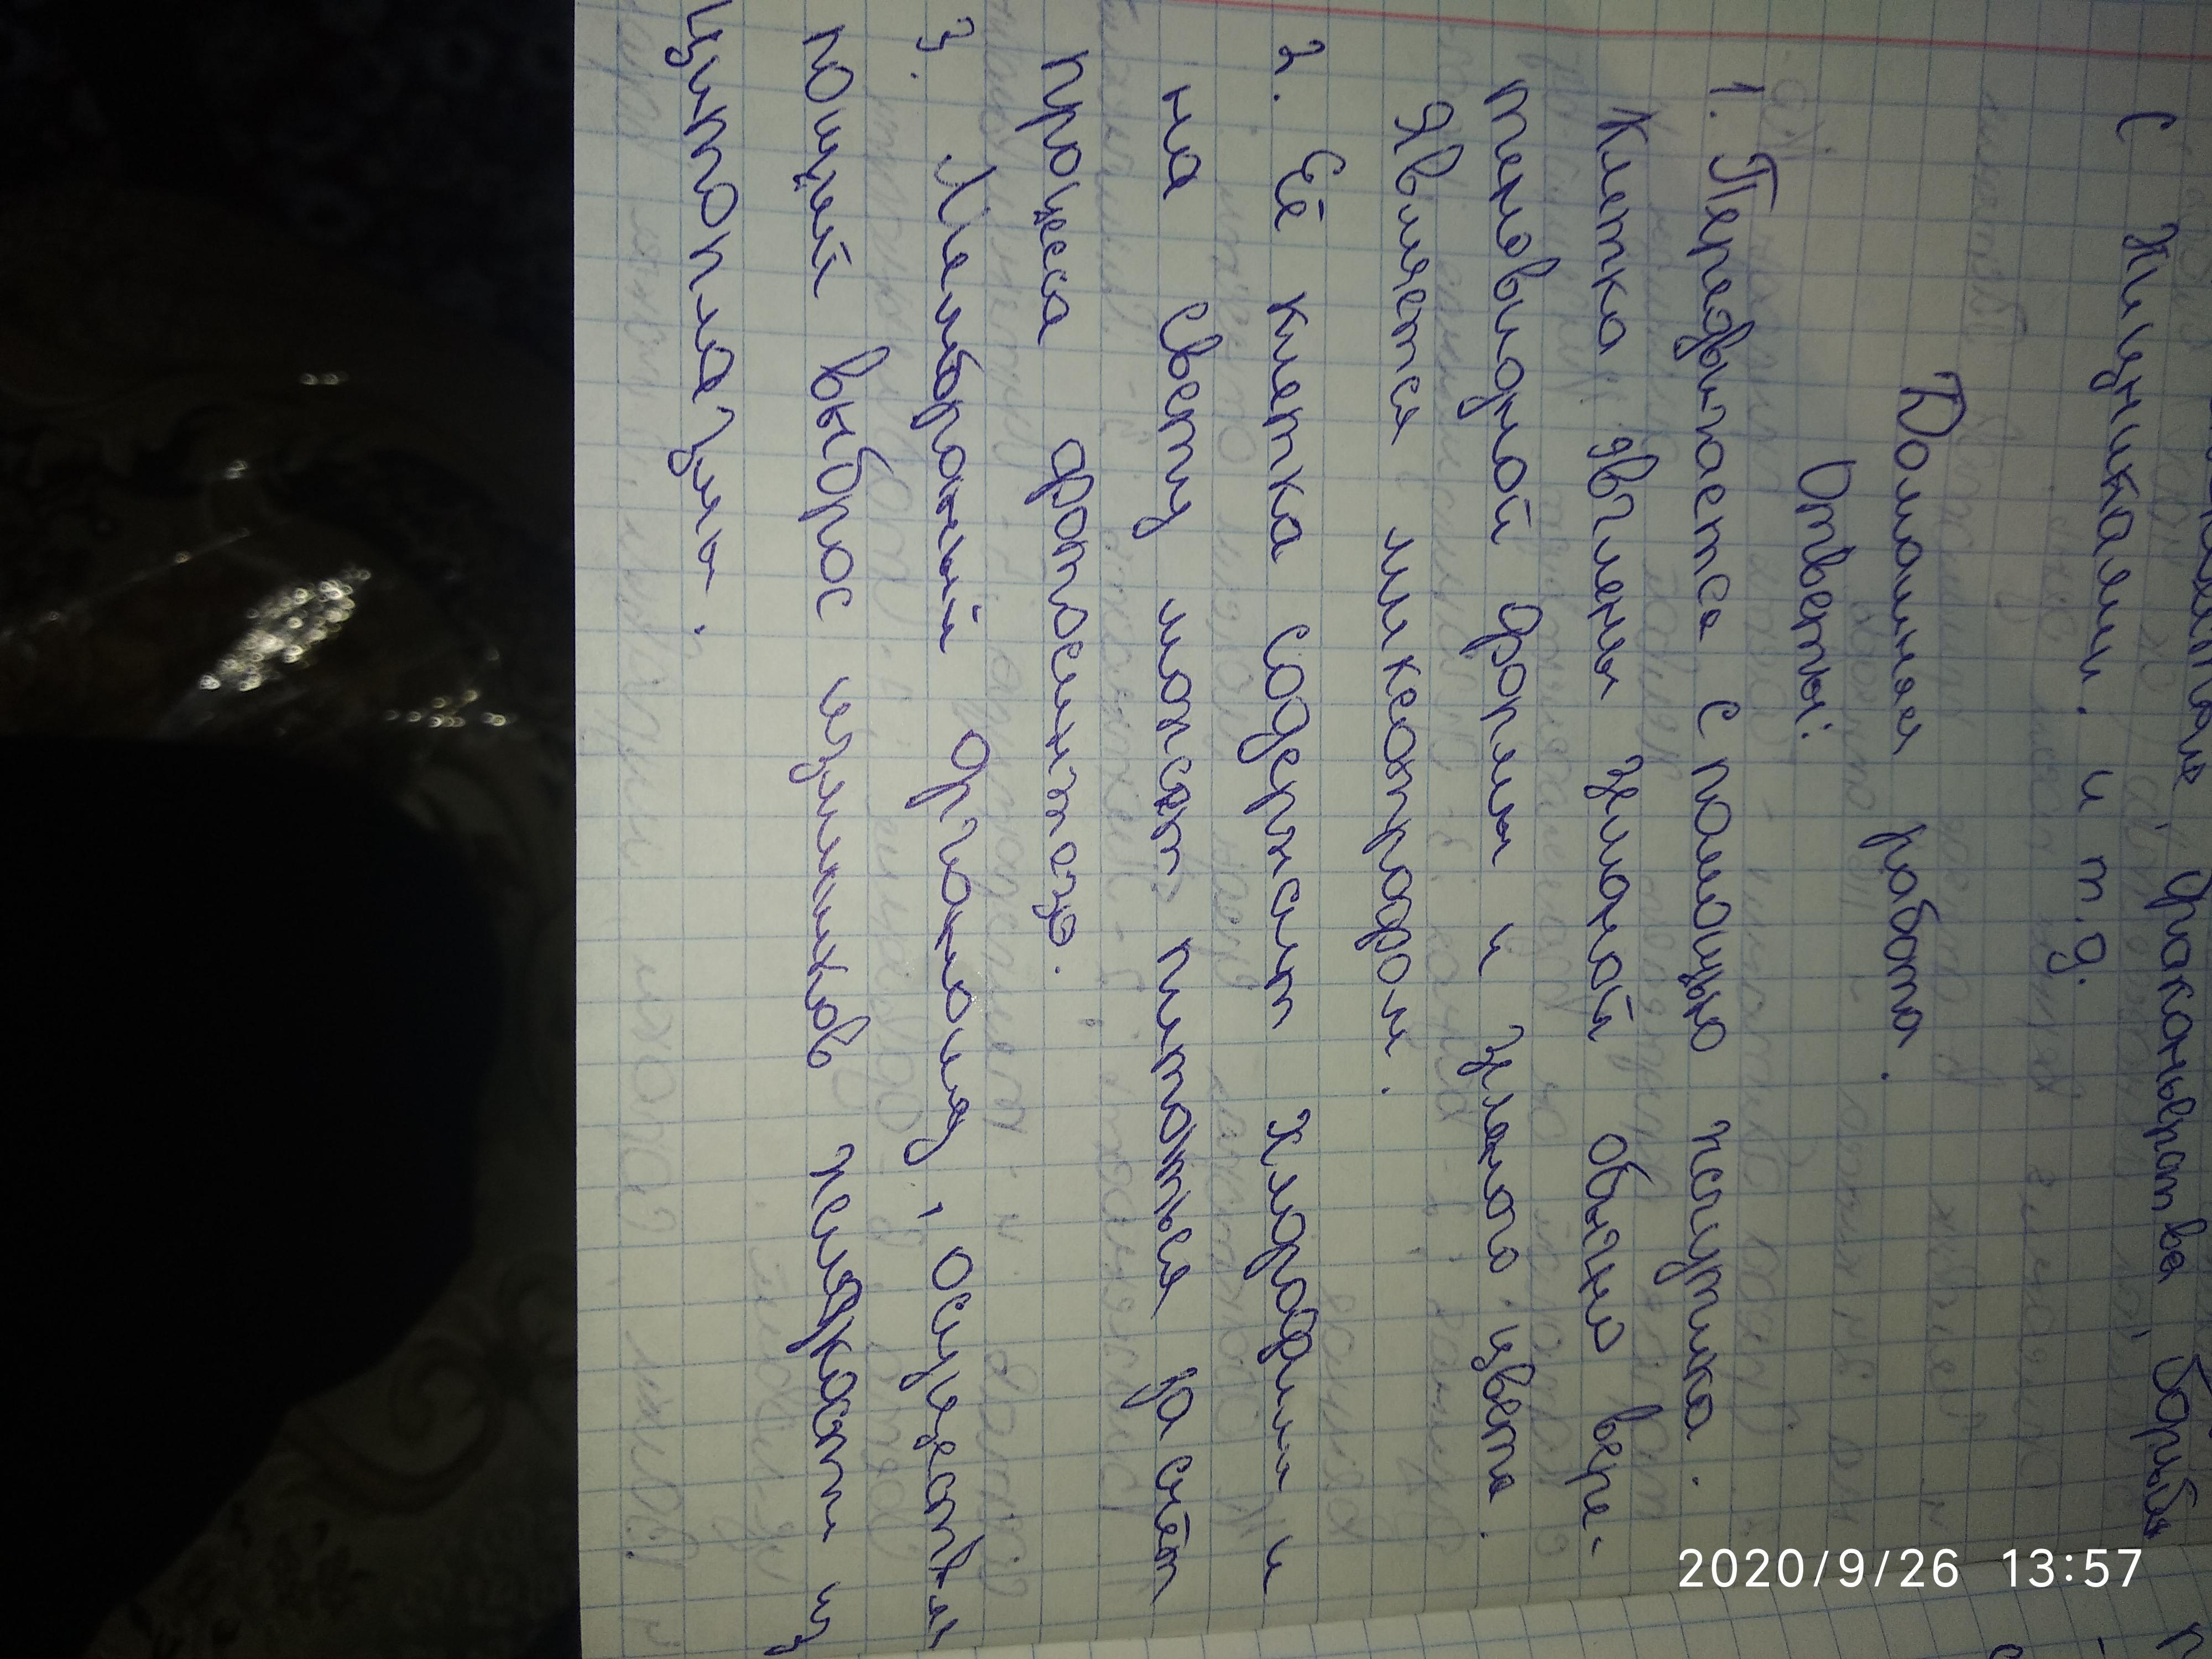 браконьерства, борьба
с хищниками. и т.д.
Домашняя работа.
Ответы:
1. Передвигается с помощью жгутика.
Клетка эвглены зеленой обычно вере-
теновидной формы и зеленого цвета.
Является миксотрофом.
2. Её клетка содержит хлорофилл и
на свету может питаться за счёт
процесса фотосинтеза.
3. Мембранный органоид, осуществля
ющий выброс излишков жидкости из
цитоплазмы.
2020/9/26 13:57